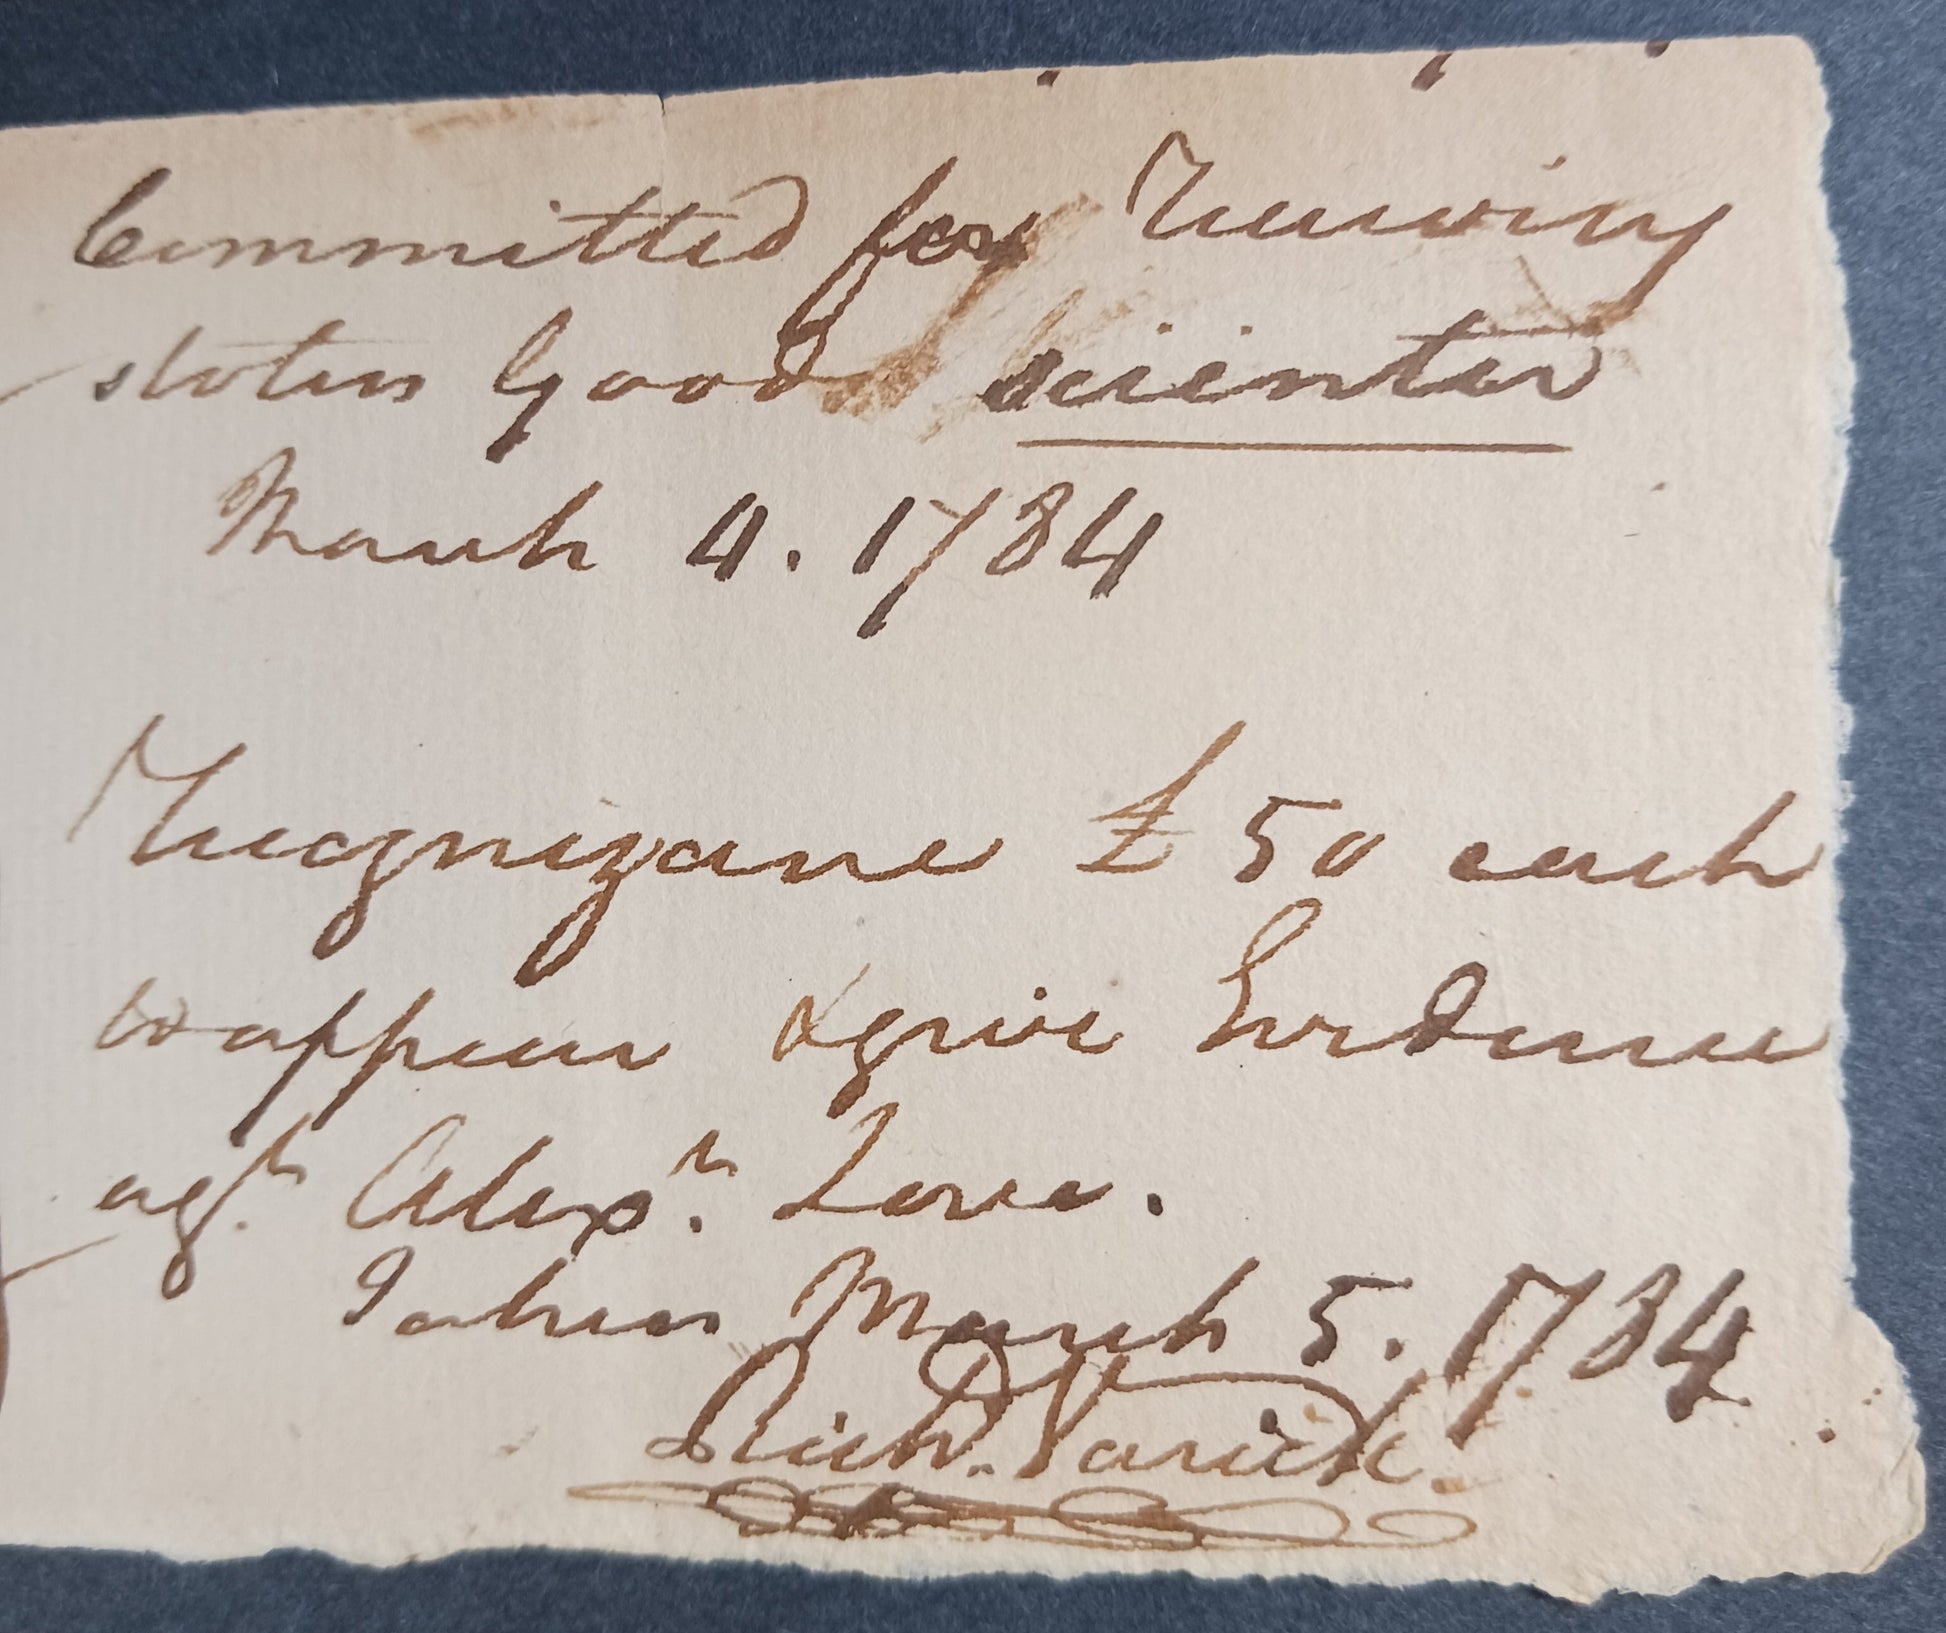 Committed for Receiving
stolen Good scienter
March 4. 1784
Recognizance £ 50 each
to appear & give Evidence
agt. Alexr. Love.
Taken March 5. 1784
Richd. Varick.